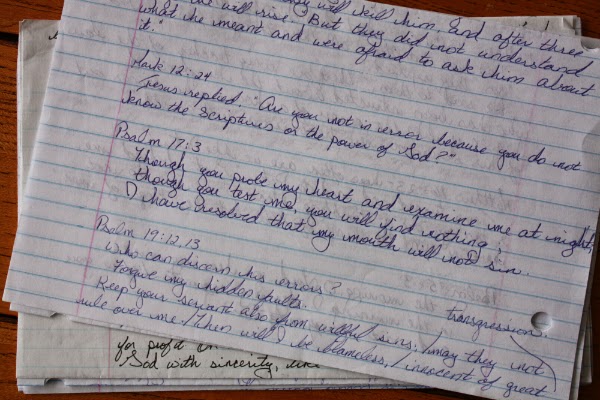 will kill him, and after three
will rise." But they did not understand
what he meant and were afraid to ask him about
it."
Mark 12:24
Jesus replied, "Are you not in error because you do not
know the Scriptures or the power of God?"
Psalm 17:3
Though you probe my heart and examine me at night,
though you test me, you will find nothing;
I have resolved that my mouth will not sin.
Psalm 19:12,13
Who can discern his errors?
Forgive my hidden faults.
Keep your servant also from willful sins; / may they not
rule over me. / Then will I be blameless, / innocent of great
transgression.
for profit
God with sincerity,